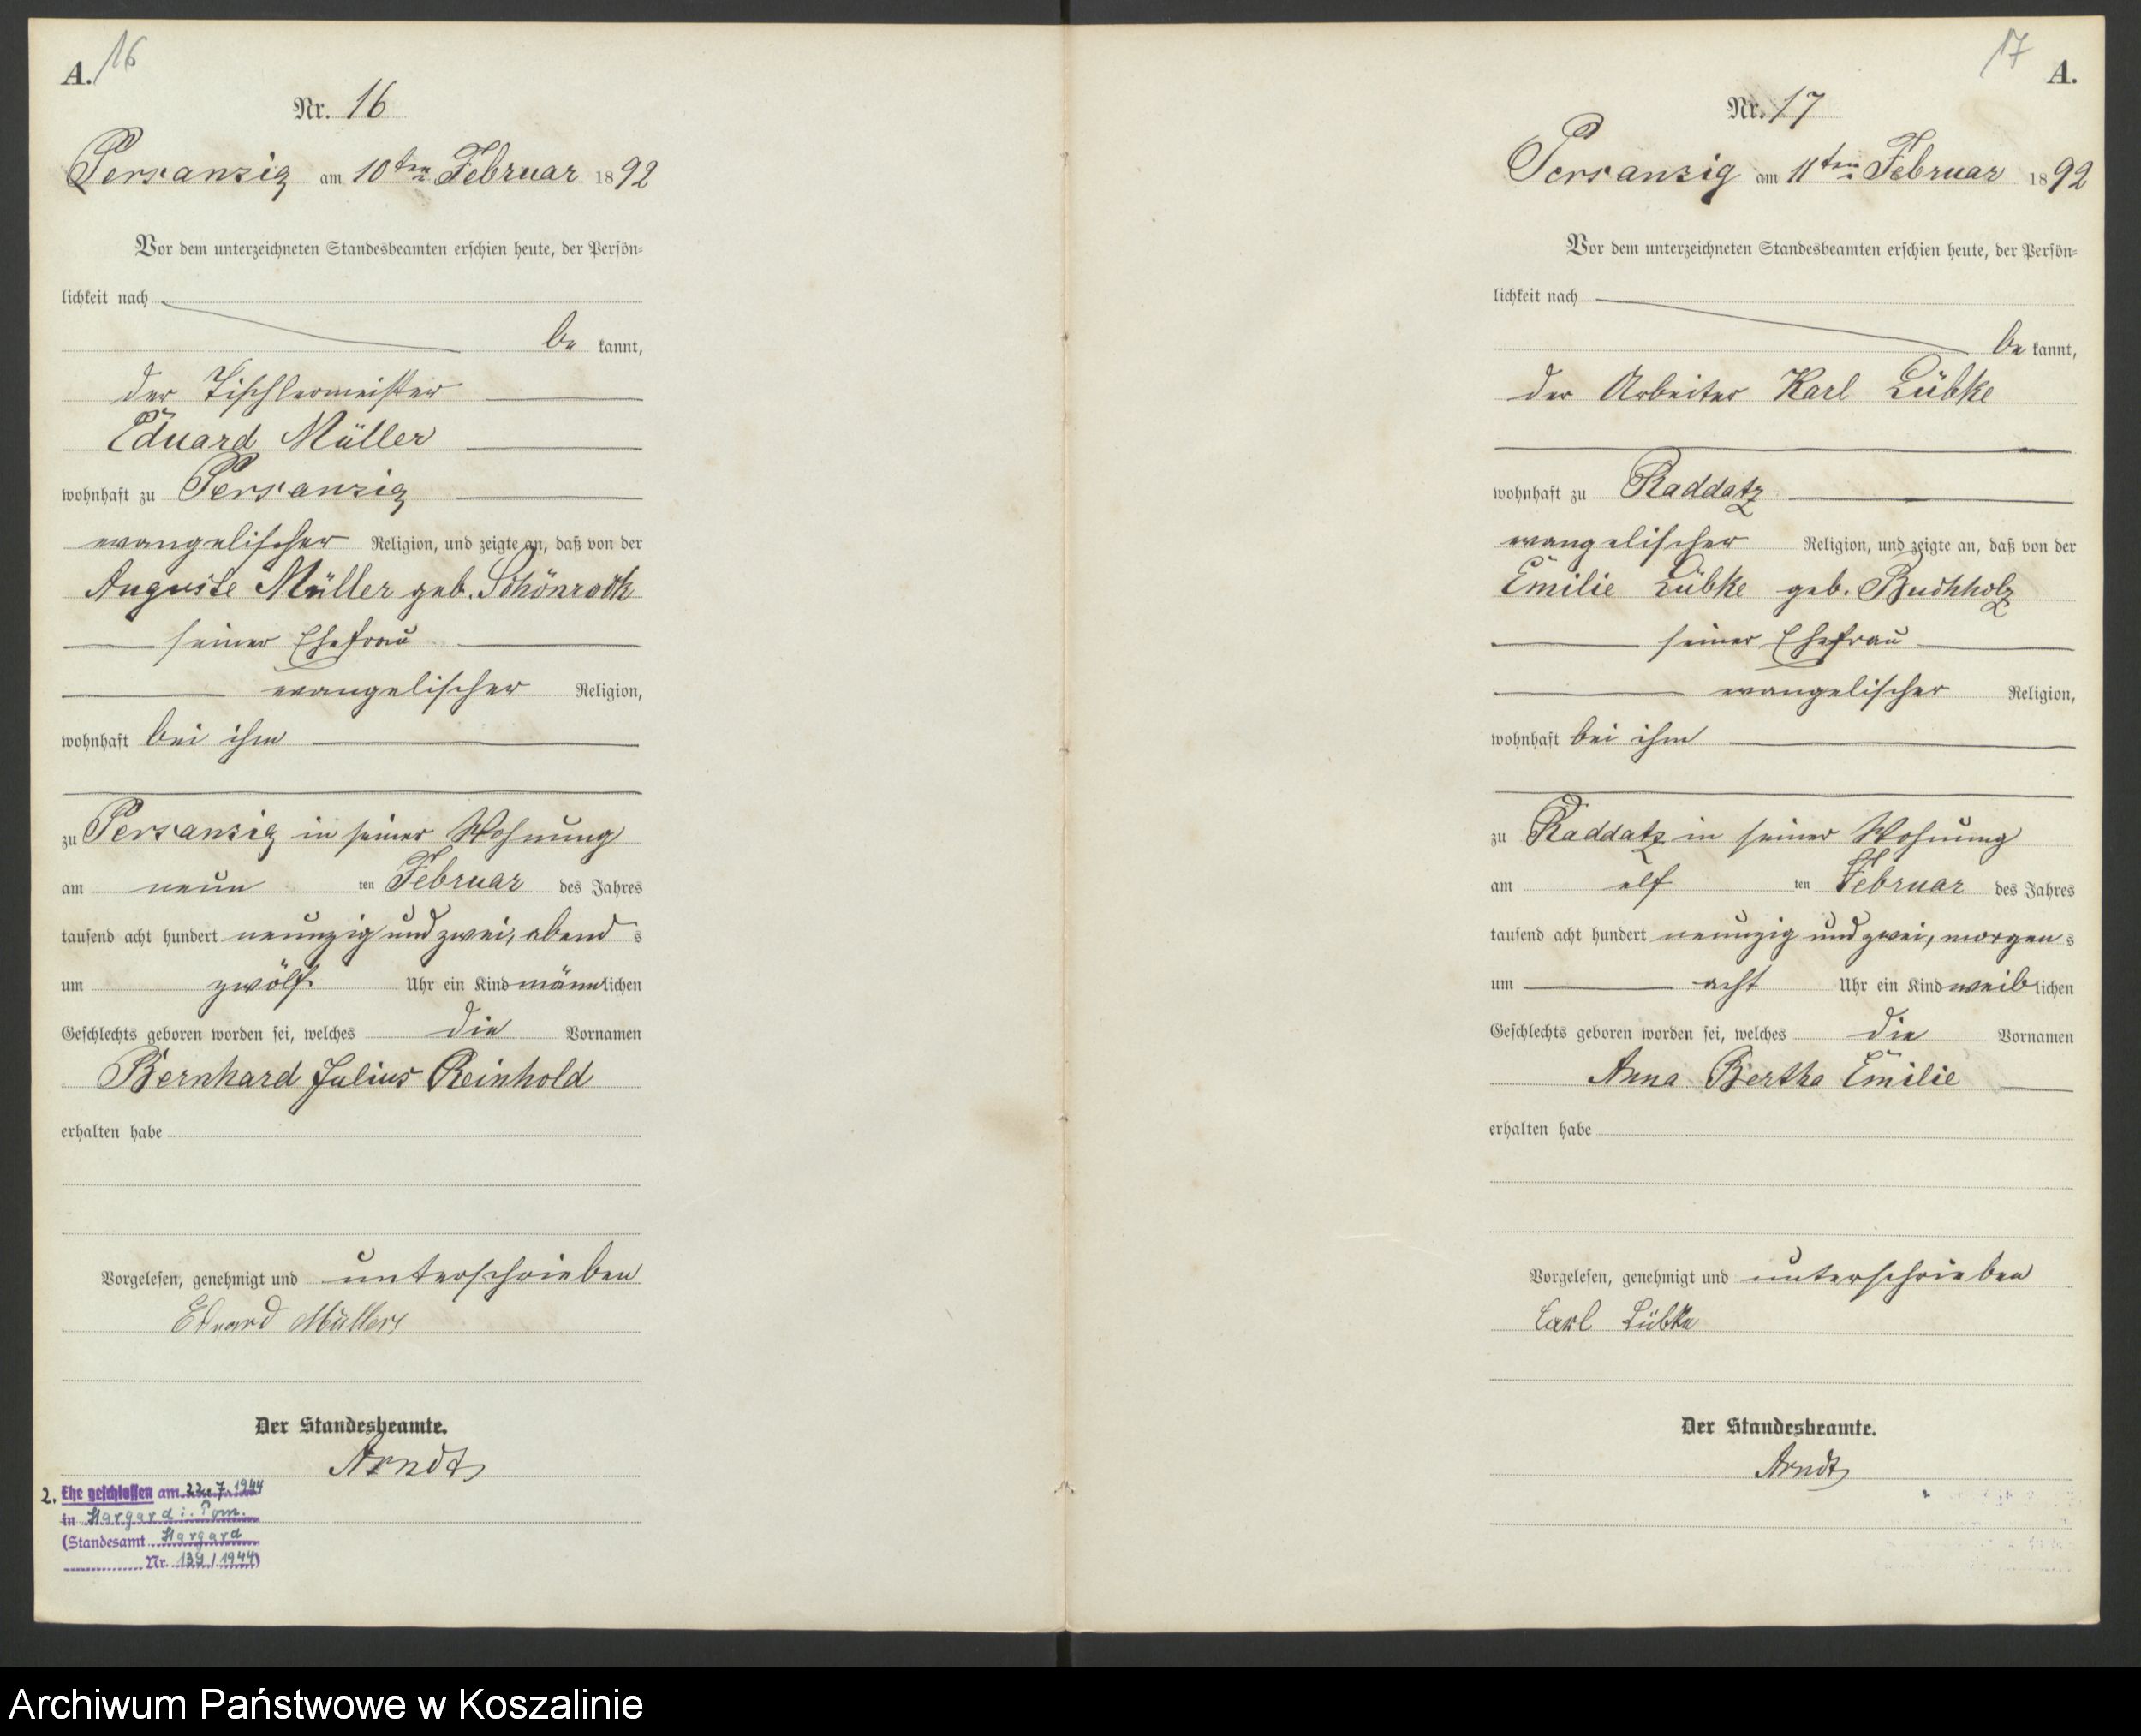 A. 16
Nr. 16
Persanzig am 10ten Februar 1892
Vor dem unterzeichneten Standesbeamten erschien heute, der Persön=
lichkeit nach
be kannt,
der Tischlermeister
Eduard Müller
wohnhaft zu Persanzig
evangelischer Religion, und zeigte an, daß von der
Auguste Müller geb. Schönrock
seiner Ehefrau
evangelischer Religion,
wohnhaft bei ihm
zu Persanzig in seiner Wohnung
am neun ten Februar des Jahres
tausend acht hundert neunzig und zwei, abend s
um zwölf Uhr ein Kind männlichen
Geschlechts geboren worden sei, welches die Vornamen
Bernhard Julius Reinhold
erhalten habe
Vorgelesen, genehmigt und unterschrieben
Eduard Müller
Der Standesbeamte.
Arndt
2. Ehe geschlossen am 22. 7. 1944
in Stargard i. Pom.
(Standesamt Stargard
Nr. 139/1944)
17 A.
Nr. 17
Persanzig am 11ten Februar 1892
Vor dem unterzeichneten Standesbeamten erschien heute, der Persön=
lichkeit nach
be kannt,
der Arbeiter Karl Lübke
wohnhaft zu Raddatz
evangelischer Religion, und zeigte an, daß von der
Emilie Lübke geb. Buchholz
seiner Ehefrau
evangelischer Religion,
wohnhaft bei ihm
zu Raddatz in seiner Wohnung
am elf ten Februar des Jahres
tausend acht hundert neunzig und zwei, morgen s
um acht Uhr ein Kind weiblichen
Geschlechts geboren worden sei, welches die Vornamen
Anna Bertha Emilie
erhalten habe
Vorgelesen, genehmigt und unterschrieben
Carl Lübke
Der Standesbeamte.
Arndt
Archiwum Państwowe w Koszalinie